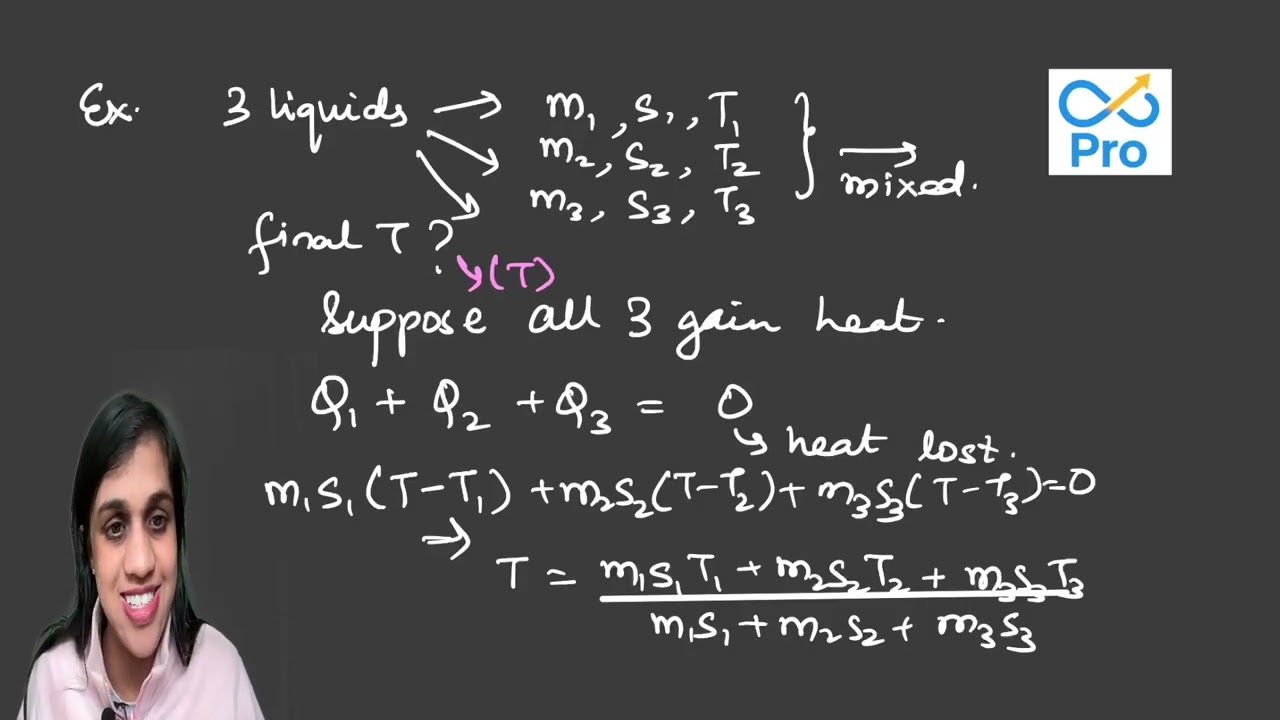 Ex. 3 liquids → m₁, s₁, T₁
m₂, s₂, T₂
m₃, s₃, T₃
→ mixed.
Pro
final T?
↘(T)
Suppose all 3 gain heat.
Q₁ + Q₂ + Q₃ = 0
↘ heat lost.
m₁s₁(T-T₁) + m₂s₂(T-T₂) + m₃s₃(T-T₃)=0
⇒ T = m₁s₁T₁ + m₂s₂T₂ + m₃s₃T₃
m₁s₁ + m₂s₂ + m₃s₃